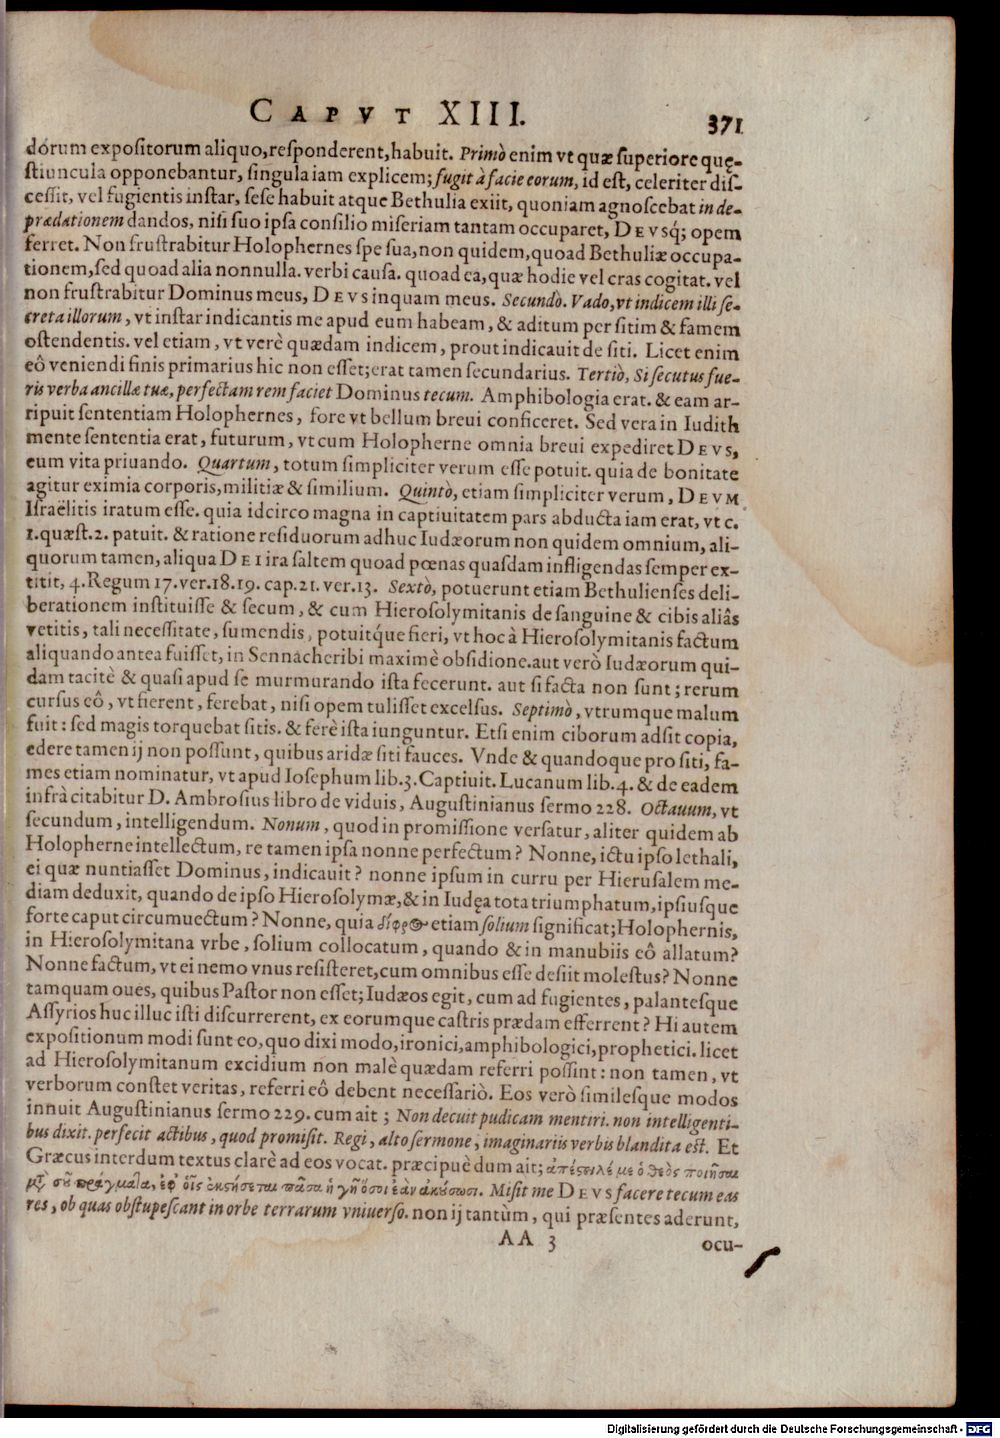 CAPVT XIII.
371
dórum expositorum aliquo, responderent, habuit. Primò enim vt quæ superiore quę-
stiuncula opponebantur, singula iam explicem; fugit à facie eorum, id est, celeriter dis-
cessit, vel fugientis instar, sese habuit atque Bethulia exiit, quoniam agnoscebat in de-
prædationem dandos, nisi suo ipsa consilio miseriam tantam occuparet, DEVSq́; opem
ferret. Non frustrabitur Holophernes spe sua, non quidem, quoad Bethuliæ occupa-
tionem, sed quoad alia nonnulla. verbi causa. quoad ea, quæ hodie vel cras cogitat. vel
non frustrabitur Dominus meus, DEVS inquam meus. Secundò. Vado, vt indicem illi se-
creta illorum, vt instar indicantis me apud eum habeam, & aditum per sitim & famem
ostendentis. vel etiam, vt verè quædam indicem, prout indicauit de siti. Licet enim
eô veniendi finis primarius hic non esset; erat tamen secundarius. Tertiò, Si secutus fue-
ris verba ancillæ tuæ, perfectam rem faciet Dominus tecum. Amphibologia erat. & eam ar-
ripuit sententiam Holophernes, fore vt bellum breui conficeret. Sed vera in Iudith
mente sententia erat, futurum, vt cum Holopherne omnia breui expediret DEVS,
eum vita priuando. Quartum, totum simpliciter verum esse potuit. quia de bonitate
agitur eximia corporis, militiæ & similium. Quintò, etiam simpliciter verum, DEVM
Israëlitis iratum esse. quia idcirco magna in captiuitatem pars abducta iam erat, vt c.
1. quæst. 2. patuit. & ratione residuorum adhuc Iudæorum non quidem omnium, ali-
quorum tamen, aliqua DEI ira saltem quoad pœnas quasdam infligendas semper ex-
titit, 4. Regum 17. ver. 18. 19. cap. 21. ver. 13. Sextò, potuerunt etiam Bethulienses deli-
berationem instituisse & secum, & cum Hierosolymitanis de sanguine & cibis aliâs
vetitis, tali necessitate, sumendis, potuitq́ue fieri, vt hoc à Hierosolymitanis factum
aliquando antea fuisset, in Sennacheribi maximè obsidione. aut verò Iudæorum qui-
dam tacitè & quasi apud se murmurando ista fecerunt. aut si facta non sunt; rerum
cursus eô, vt fierent, ferebat, nisi opem tulisset excelsus. Septimò, vtrumque malum
fuit: sed magis torquebat sitis. & ferè ista iunguntur. Etsi enim ciborum adsit copia,
edere tamen ij non possunt, quibus aridæ siti fauces. Vnde & quandoque pro siti, fa-
mes etiam nominatur, vt apud Iosephum lib. 3. Captiuit. Lucanum lib. 4. & de eadem
infrà citabitur D. Ambrosius libro de viduis, Augustinianus sermo 228. Octauum, vt
secundum, intelligendum. Nonum, quod in promissione versatur, aliter quidem ab
Holopherne intellectum, re tamen ipsa nonne perfectum? Nonne, ictu ipso lethali,
ei quæ nuntiasset Dominus, indicauit? nonne ipsum in curru per Hierusalem me-
diam deduxit, quando de ipso Hierosolymæ, & in Iudęa tota triumphatum, ipsiusque
forte caput circumuectum? Nonne, quia δίφρος etiam solium significat; Holophernis,
in Hierosolymitana vrbe, solium collocatum, quando & in manubiis eô allatum?
Nonne factum, vt ei nemo vnus resisteret, cum omnibus esse desiit molestus? Nonne
tamquam oues, quibus Pastor non esset; Iudæos egit, cum ad fugientes, palantesque
Assyrios huc illuc isti discurrerent, ex eorumque castris prædam efferrent? Hi autem
expositionum modi sunt eo, quo dixi modo, ironici, amphibologici, prophetici. licet
ad Hierosolymitanum excidium non malè quædam referri possint: non tamen, vt
verborum constet veritas, referri eô debent necessariò. Eos verò similesque modos
innuit Augustinianus sermo 229. cum ait; Non decuit pudicam mentiri. non intelligenti-
bus dixit. perfecit actibus, quod promisit. Regi, alto sermone, imaginariis verbis blandita est. Et
Græcus interdum textus clarè ad eos vocat. præcipuè dum ait; ἀπέστειλέ με ὁ θεὸς ποιῆσαι
μετὰ σοῦ πράγματα, ἐφ' οἷς ἐκστήσεται πᾶσα ἡ γῆ ὅσοι ἐὰν ἀκούσωσι. Misit me DEVS facere tecum eas
res, ob quas obstupescant in orbe terrarum vniuerso. non ij tantùm, qui præsentes aderunt,
AA 3
ocu-
Digitalisierung gefördert durch die Deutsche Forschungsgemeinschaft - DFG